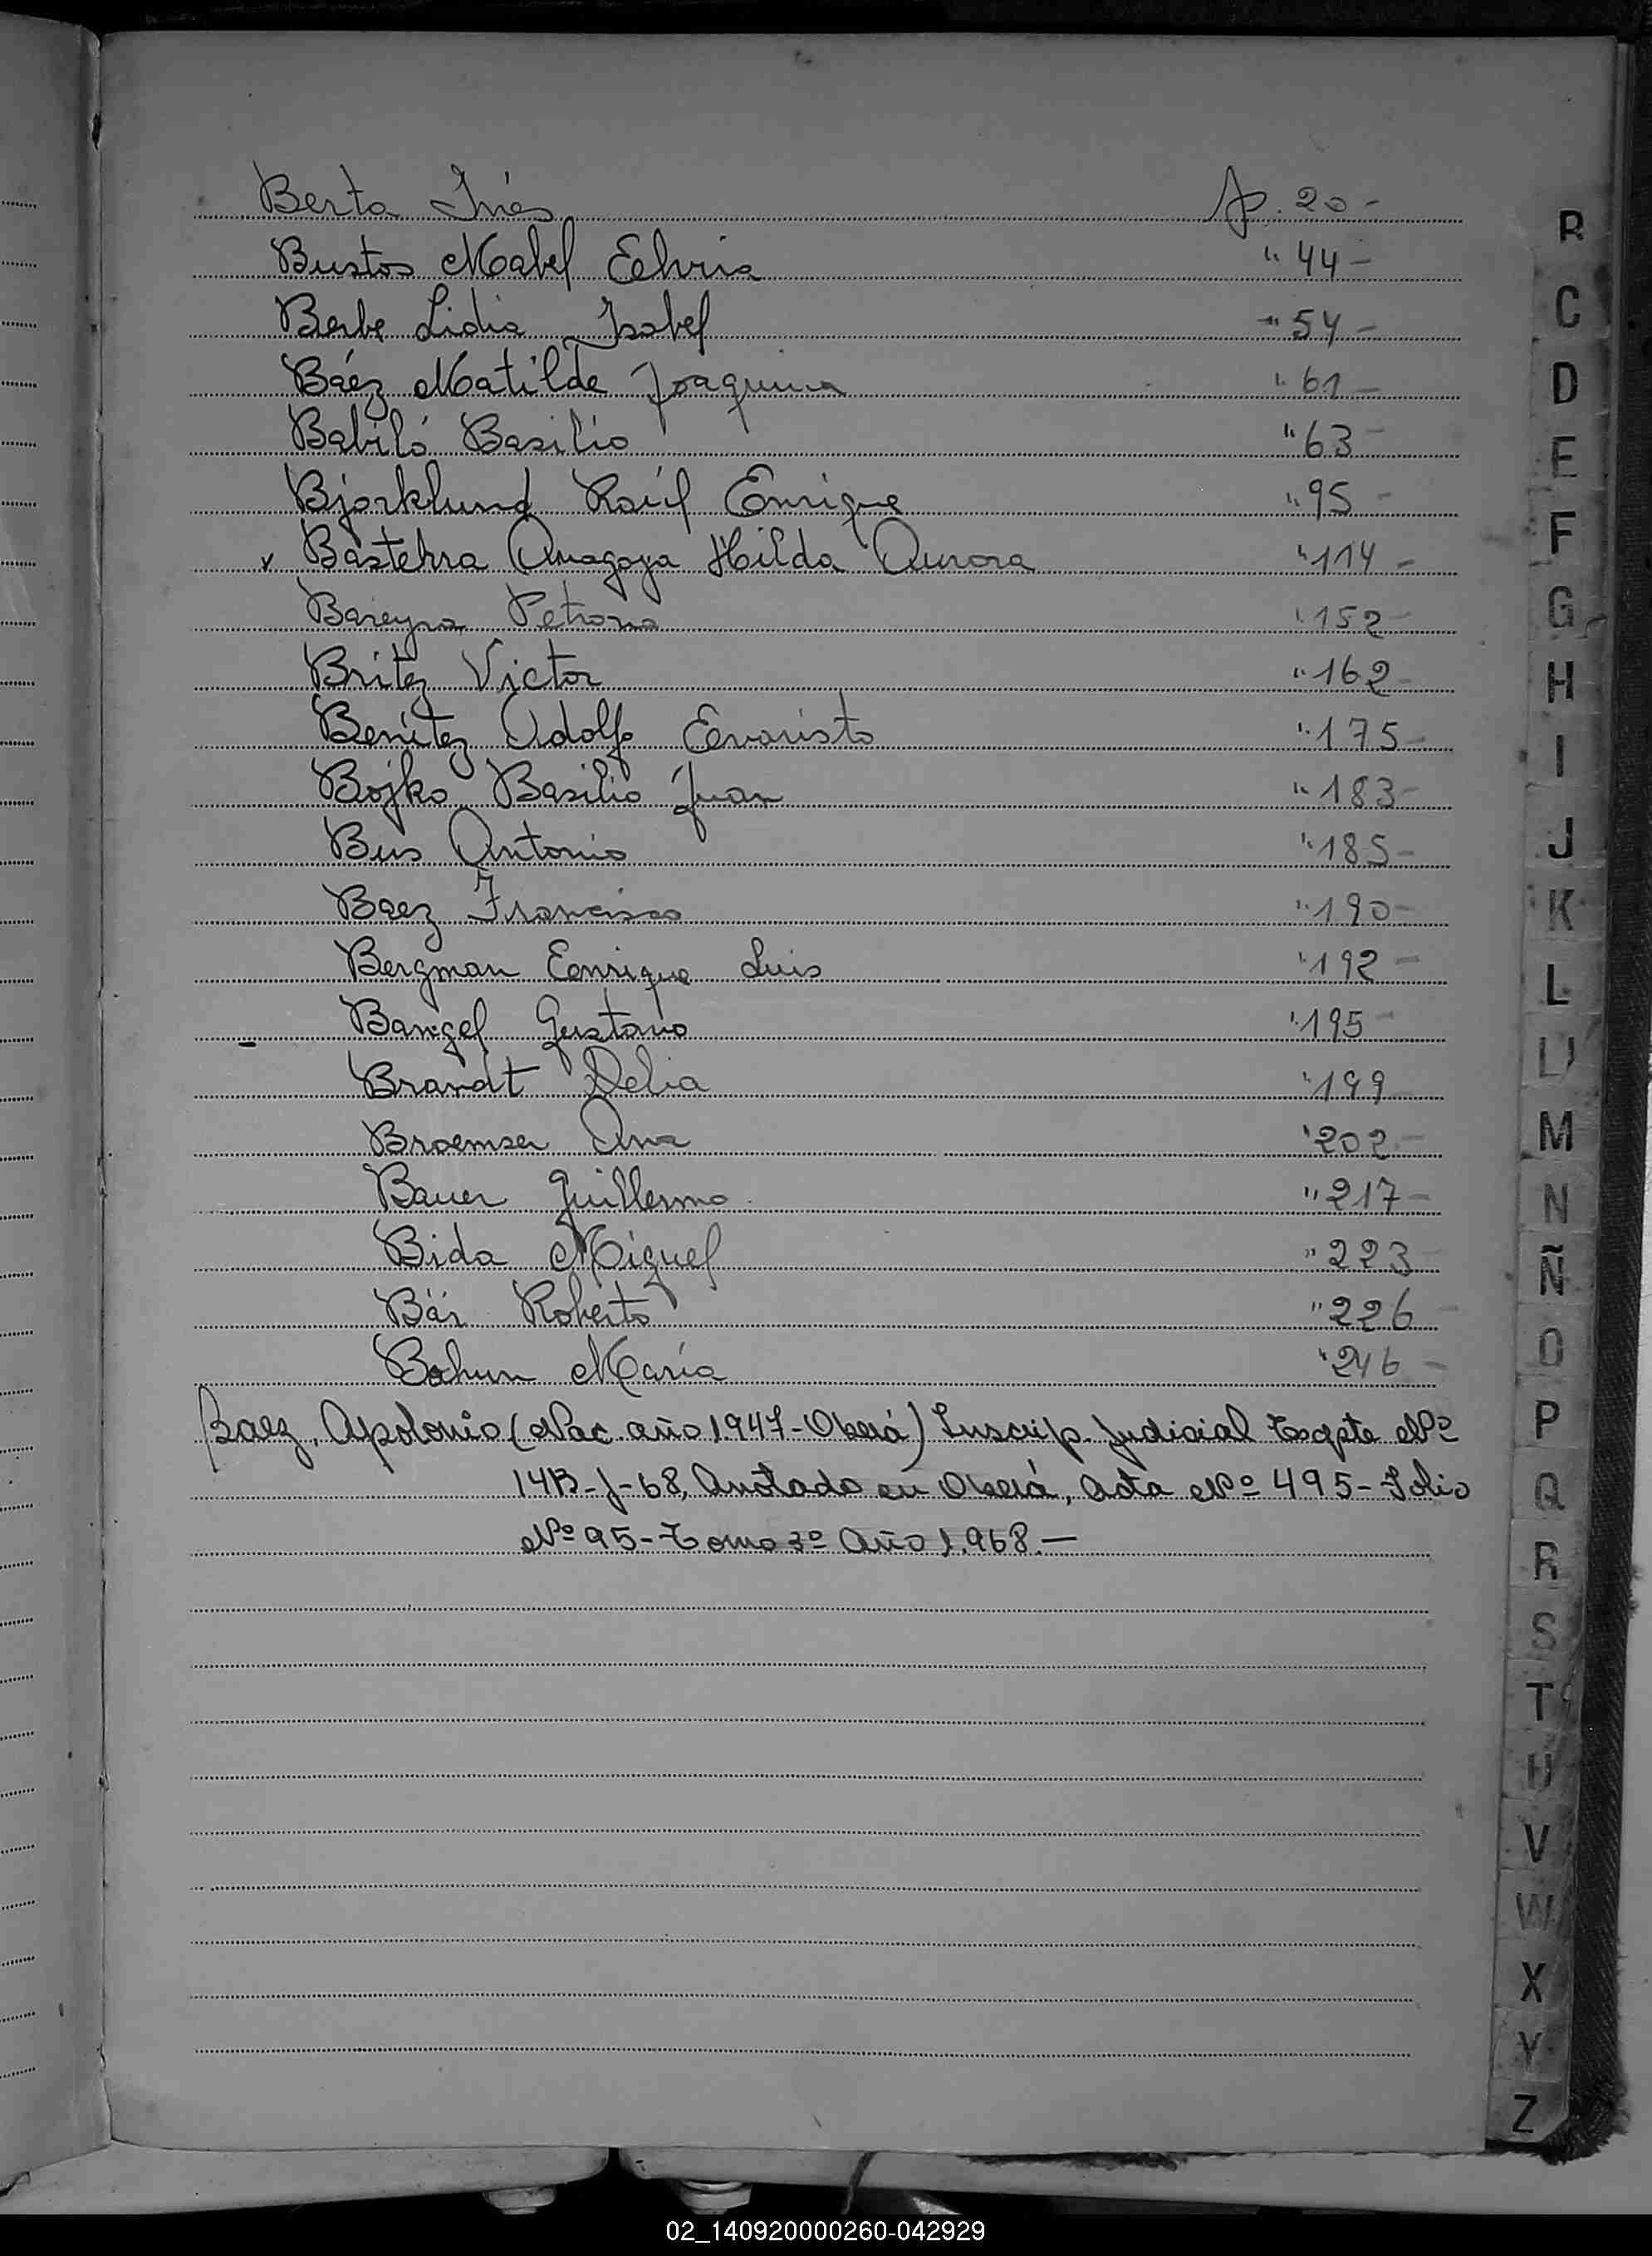 Berta Inés Ap. 20 -
Bustos Mabel Elvira " 44 -
Berbe Lidia Isabel " 54 -
Báez Matilde Joaquina " 61 -
Babiló Basilio " 63 -
Bjorklund Raúl Enrique " 95 -
v Hilda Aurora " 114 -
Bareyra Petrona " 152 -
Britez Victor " 162 -
Benítez Adolfo Evaristo " 175 -
Bojko Basilio Juan " 183 -
Bus Antonio " 185 -
Baez Francisco " 190 -
Bergman Enrique Luis " 192 -
- Bangel Gustavo " 195 -
Brandt Delia " 199
Broemser Ana " 202 -
Bauer Guillermo " 217 -
Bida Miguel " 223 -
Bär Roberto " 226 -
Bohun María " 246 -
Baez, Apolonio (Nac. año 1947 - Oberá) Inscrip. Judicial Expte Nº
14B-J-68, Anotado en Oberá, Acta Nº 495 - Folio
Nº 95 - Tomo 3º Año 1.968. -
B
C
D
E
F
G
H
I
J
K
L
LL
M
N
Ñ
O
P
Q
R
S
T
U
V
W
X
Y
Z
02_140920000260-042929